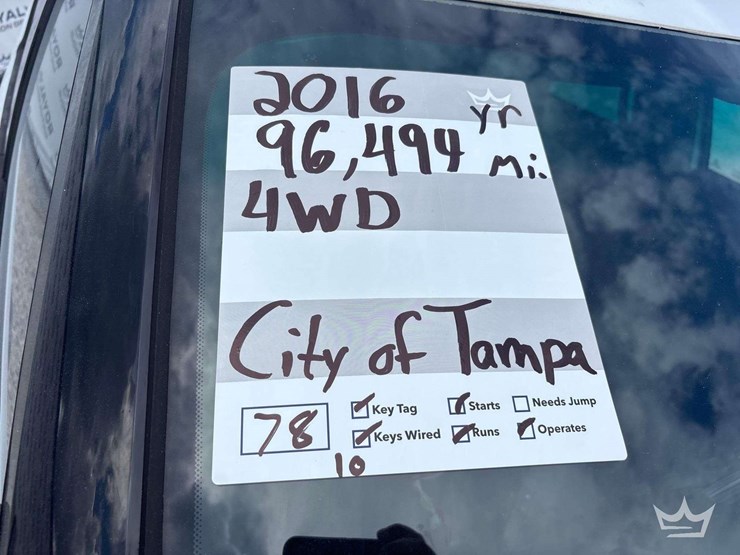 2016 yr
96,494 mi.
4WD
City of Tampa
78
10
Key Tag
Starts
Needs Jump
Keys Wired
Runs
Operates